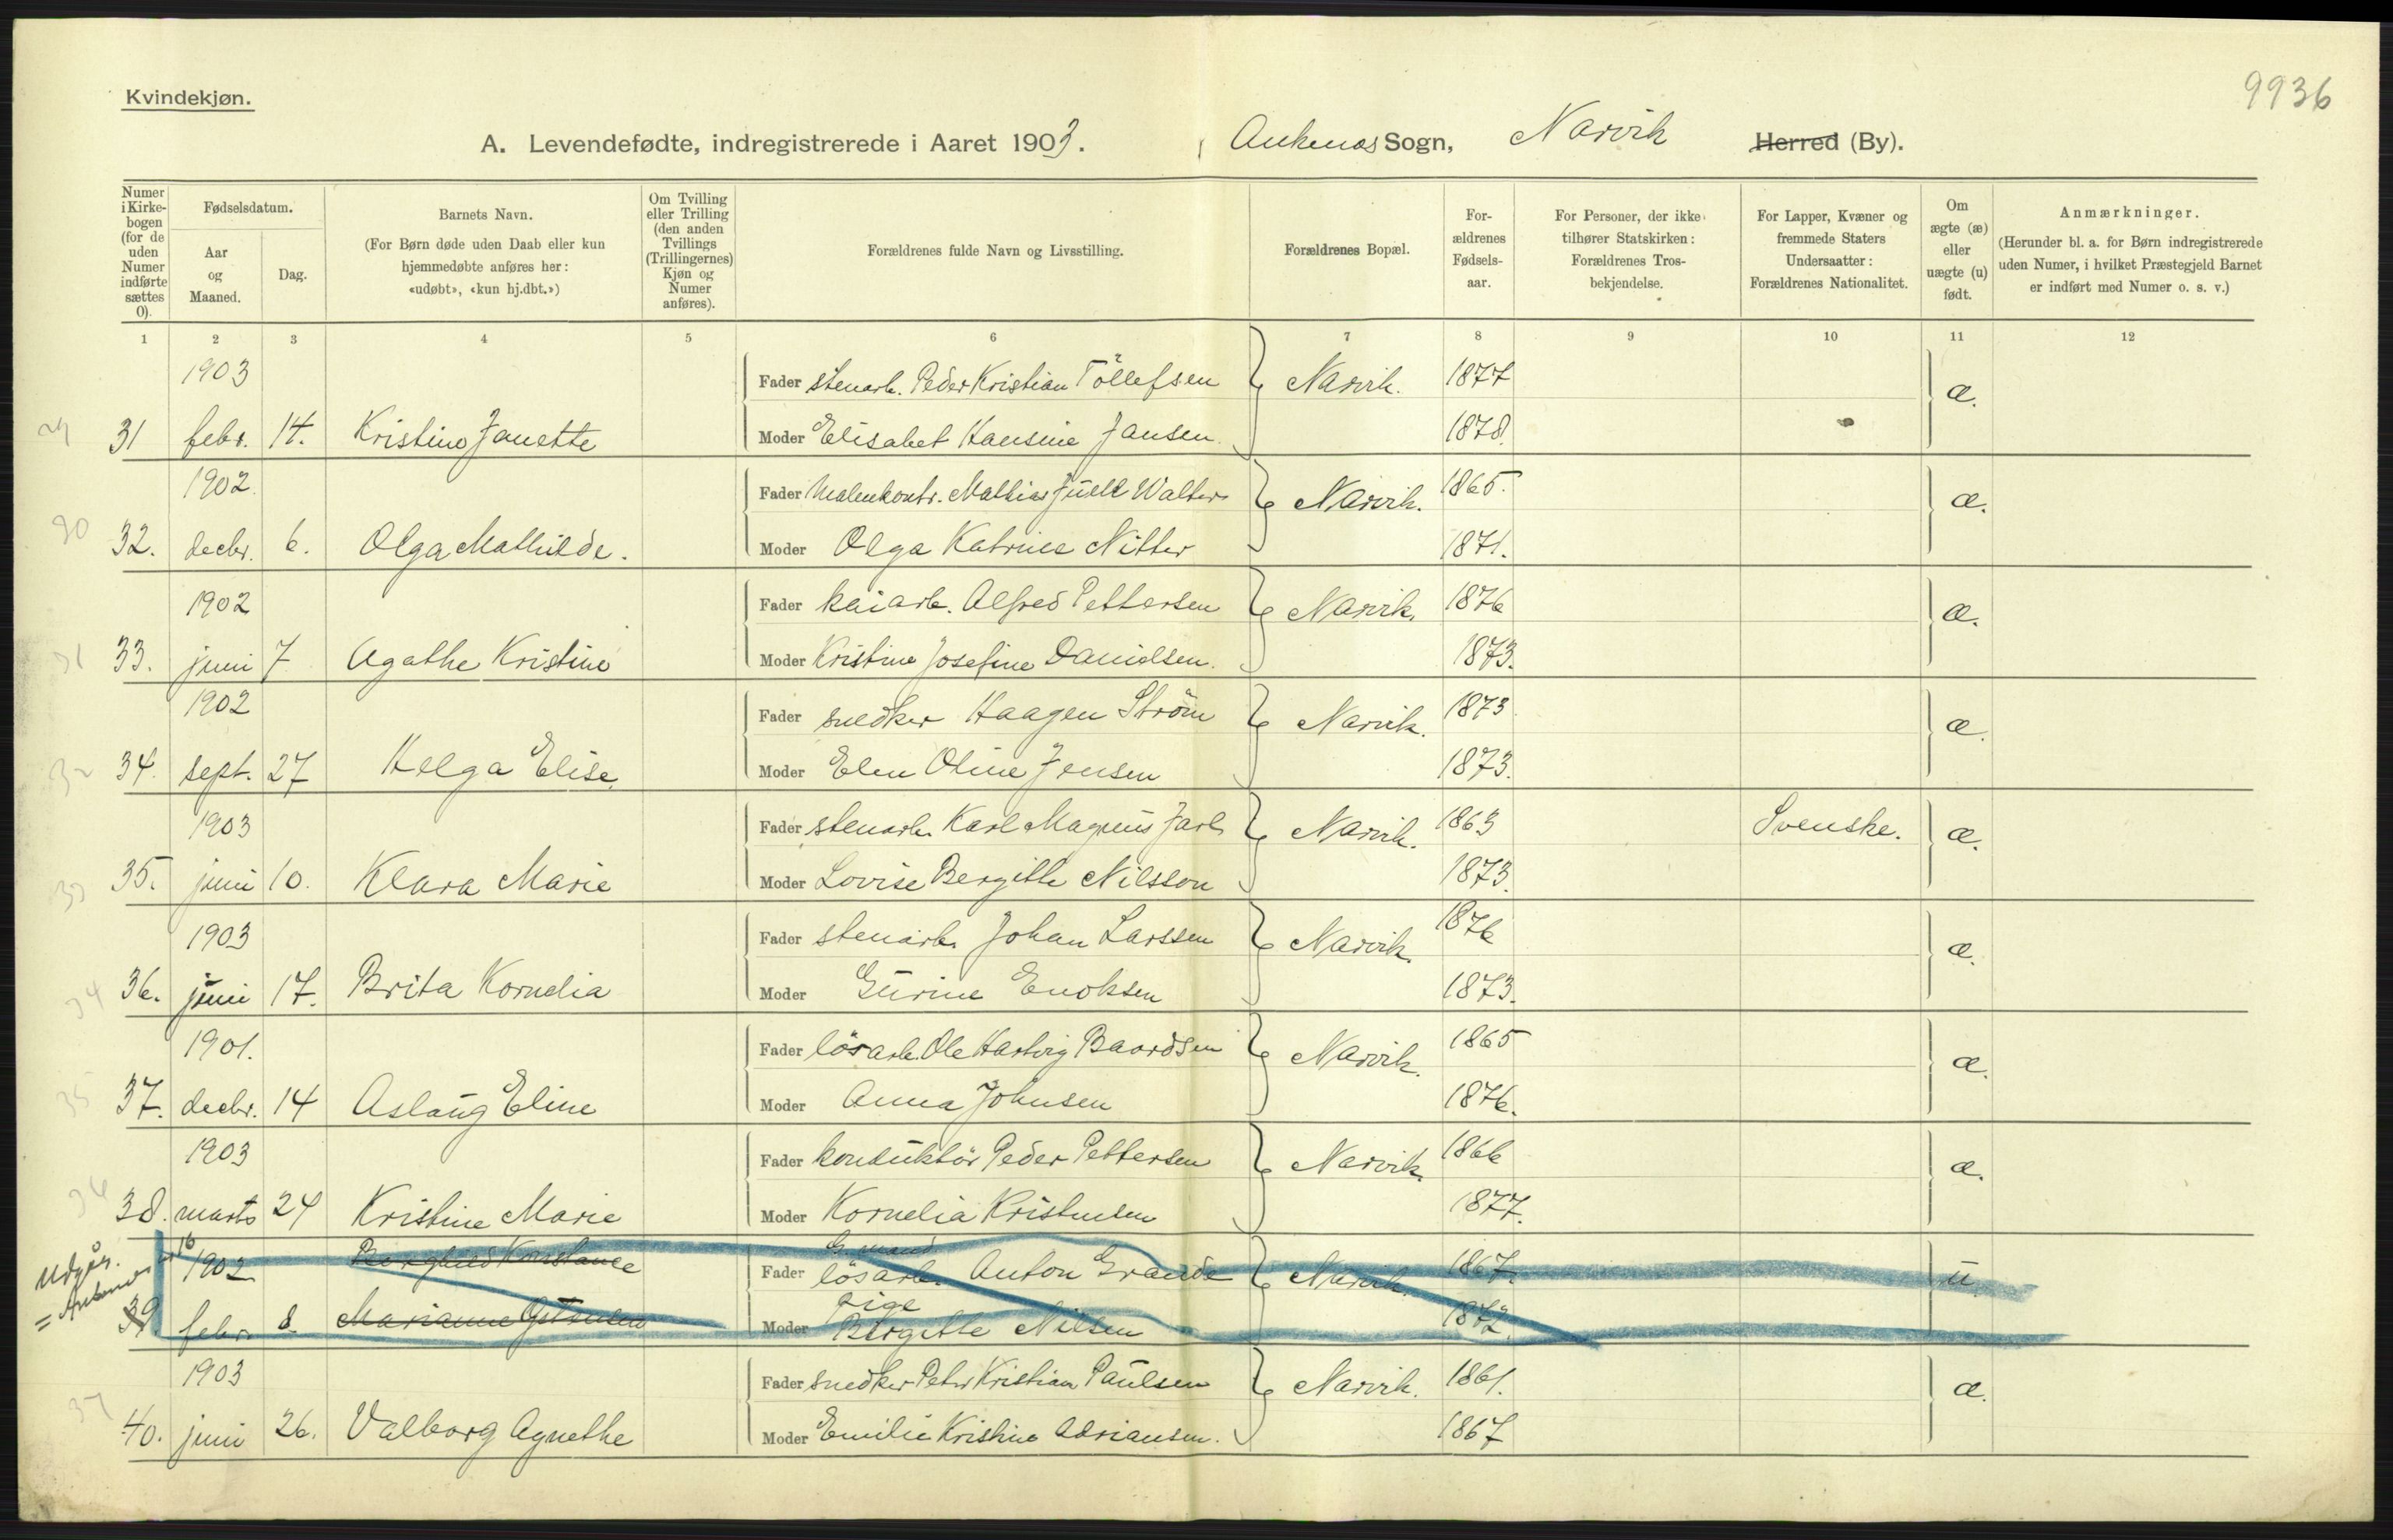 9936
Kvindekjøn.
A. Levendefødte, indregistrerede i Aaret 1903. Ankenæs Sogn, Narvik Herred (By).
Numer i Kirkebogen (for de uden Numer indførte sættes 0).
Fødselsdatum.
Aar og Maaned.
Dag.
Barnets Navn.
(For Børn døde uden Daab eller kun hjemmedøbte anføres her: «udøbt», «kun hj.dbt.»)
Om Tvilling eller Trilling (den anden Tvillings (Trillingernes) Kjøn og Numer anføres).
Forældrenes fulde Navn og Livsstilling.
Forældrenes Bopæl.
Forældrenes Fødselsaar.
For Personer, der ikke tilhører Statskirken: Forældrenes Trosbekjendelse.
For Lapper, Kvæner og fremmede Staters Undersaatter: Forældrenes Nationalitet.
Om ægte (æ) eller uægte (u) født.
Anmærkninger.
(Herunder bl. a. for Børn indregistrerede uden Numer, i hvilket Præstegjeld Barnet er indført med Numer o. s. v.)
1 2 3 4 5 6 7 8 9 10 11 12
1903 Fader stenarb. Peder Kristian Töllefsen Narvik. 1877 æ.
29 31 febr. 14. Kristine Janette Moder Elisabet Hansine Jansen. 1878.
1902. Fader Malenkontr. Mathias Juell Walter Narvik. 1865. æ.
30 32. decbr. 6. Olga Mathilde. Moder Olga Katrine Nitter 1871.
1902 Fader kaiarb. Alfred Pettersen Narvik. 1876 æ.
31 33. juni 7 Agathe Kristine Moder Kristine Josefine Danielsen. 1873.
1902 Fader snedker Haagen Ström Narvik. 1873 æ.
32 34. sept. 27 Helga Elise. Moder Elen Oline Jensen 1873.
1903 Fader stenarb. Karl Magnus Jarl Narvik. 1863 Svenske. æ.
33 35. juni 10. Klara Marie Moder Lovise Bergitte Nilsson 1873.
1903 Fader stenarb. Johan Larssen Narvik. 1876 æ.
34 36. juni 17. Brita Kornelia Moder Gurine Enoksen 1873.
1901. Fader lösarb. Ole Hartvig Baardsen Narvik. 1865 æ.
35 37. decbr. 14 Aslaug Eline Moder Anna Johnsen 1876.
1903 Fader konduktör Peder Pettersen Narvik. 1866 æ.
36 38. marts 24 Kristine Marie Moder Kornelia Kristensen 1877.
Udgår. 1902 Borghild Konstance Fader G. mand lösarb. Anton Grande Narvik. 1867. u.
39. febr. 8. Marianne Moder pige Birgitte Nilsen 1872.
1903 Fader snedker Peter Kristian Paulsen Narvik. 1861. æ.
37 40. juni 26. Valborg Agnethe Moder Emilie Kristine Adriansen. 1867